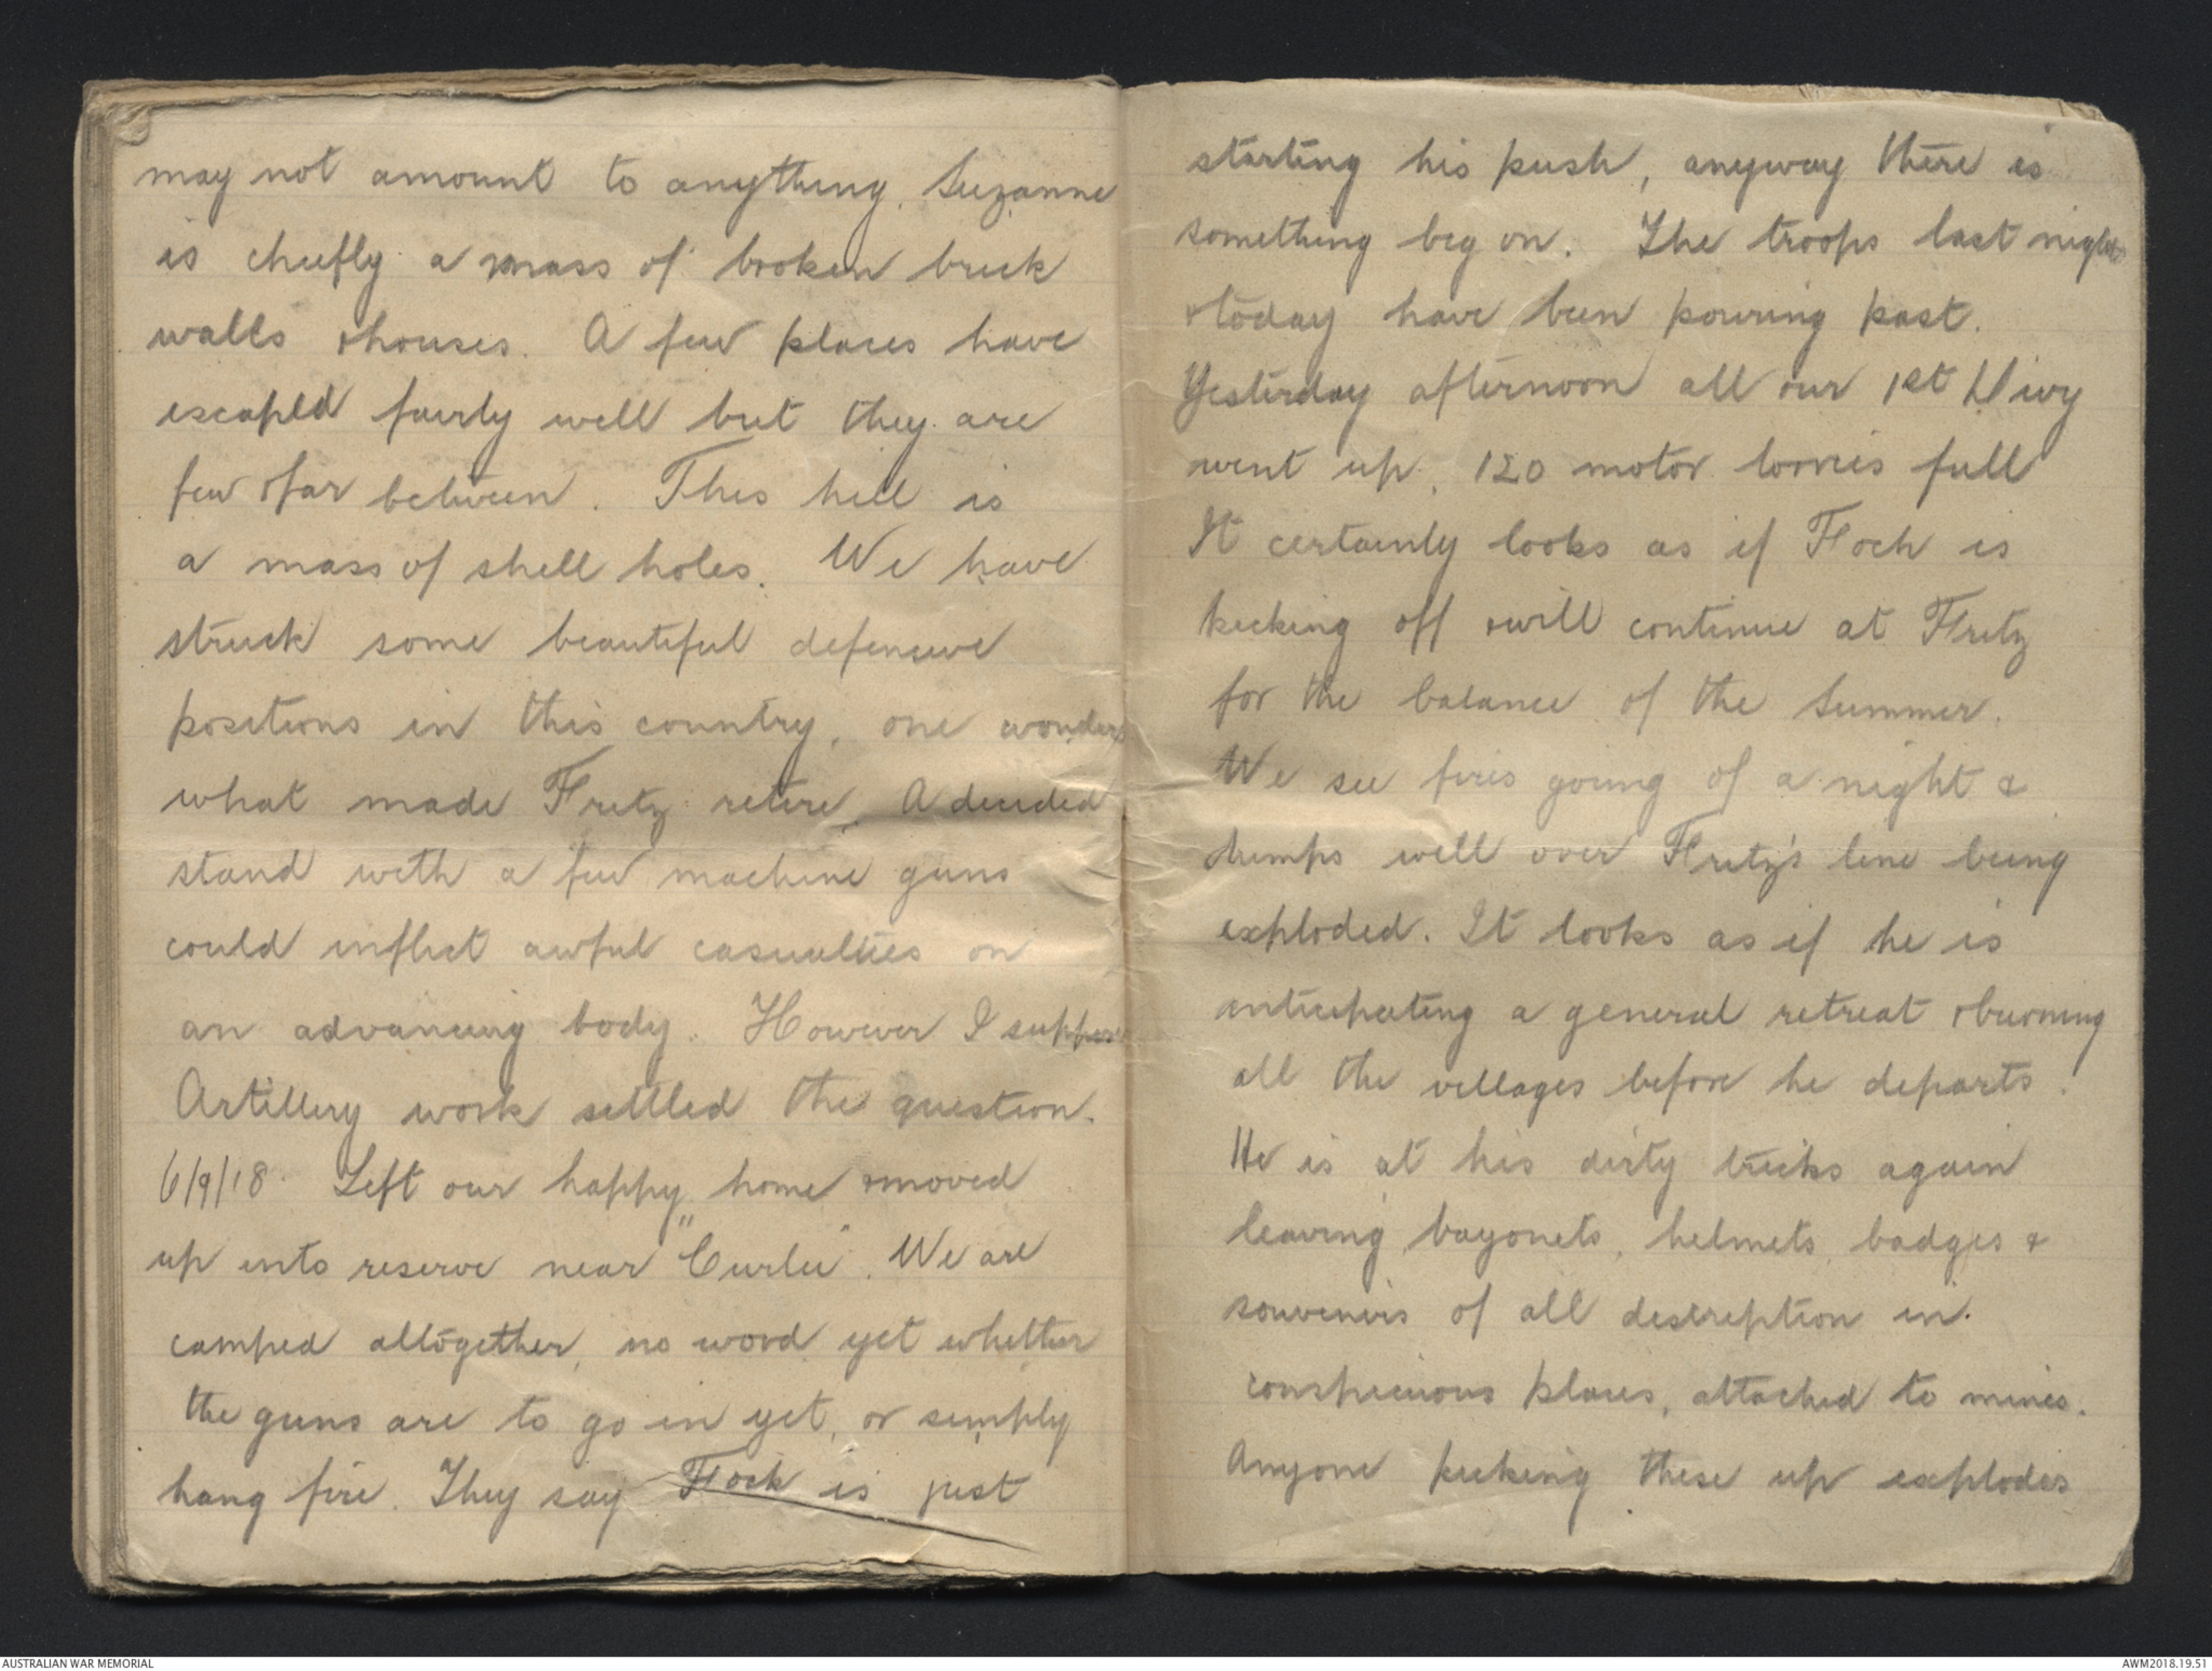 may not amount to anything. Suzanne
is chiefly a mass of broken brick
walls & houses. A few places have
escaped fairly well but they are
few & far between. This hill is
a mass of shell holes. We have
struck some beautiful defensive
positions in this country, one wonders
what made Fritz retire. A decided
stand with a few machine guns
could inflict awful casualties on
an advancing body. However I suppose
Artillery work settled the question.
6/9/18. Left our happy home & moved
up into reserve near "Curlu". We are
camped altogether, no word yet whether
the guns are to go in yet, or simply
hang fire. They say Foch is just
starting his push, anyway there is
something big on. The troops last night
& today have been pouring past.
Yesterday afternoon all our 1st Divvy
went up, 120 motor lorries full
It certainly looks as if Foch is
kicking off & will continue at Fritz
for the balance of the Summer.
We see fires going of a night &
dumps well over Fritz's line being
exploded. It looks as if he is
anticipating a general retreat & burning
all the villages before he departs.
He is at his dirty tricks again
leaving bayonets, helmets, badges &
souvenirs of all description in
conspicuous places, attached to mines.
Anyone picking these up explodes
AUSTRALIAN WAR MEMORIAL
AWM2018.19.51